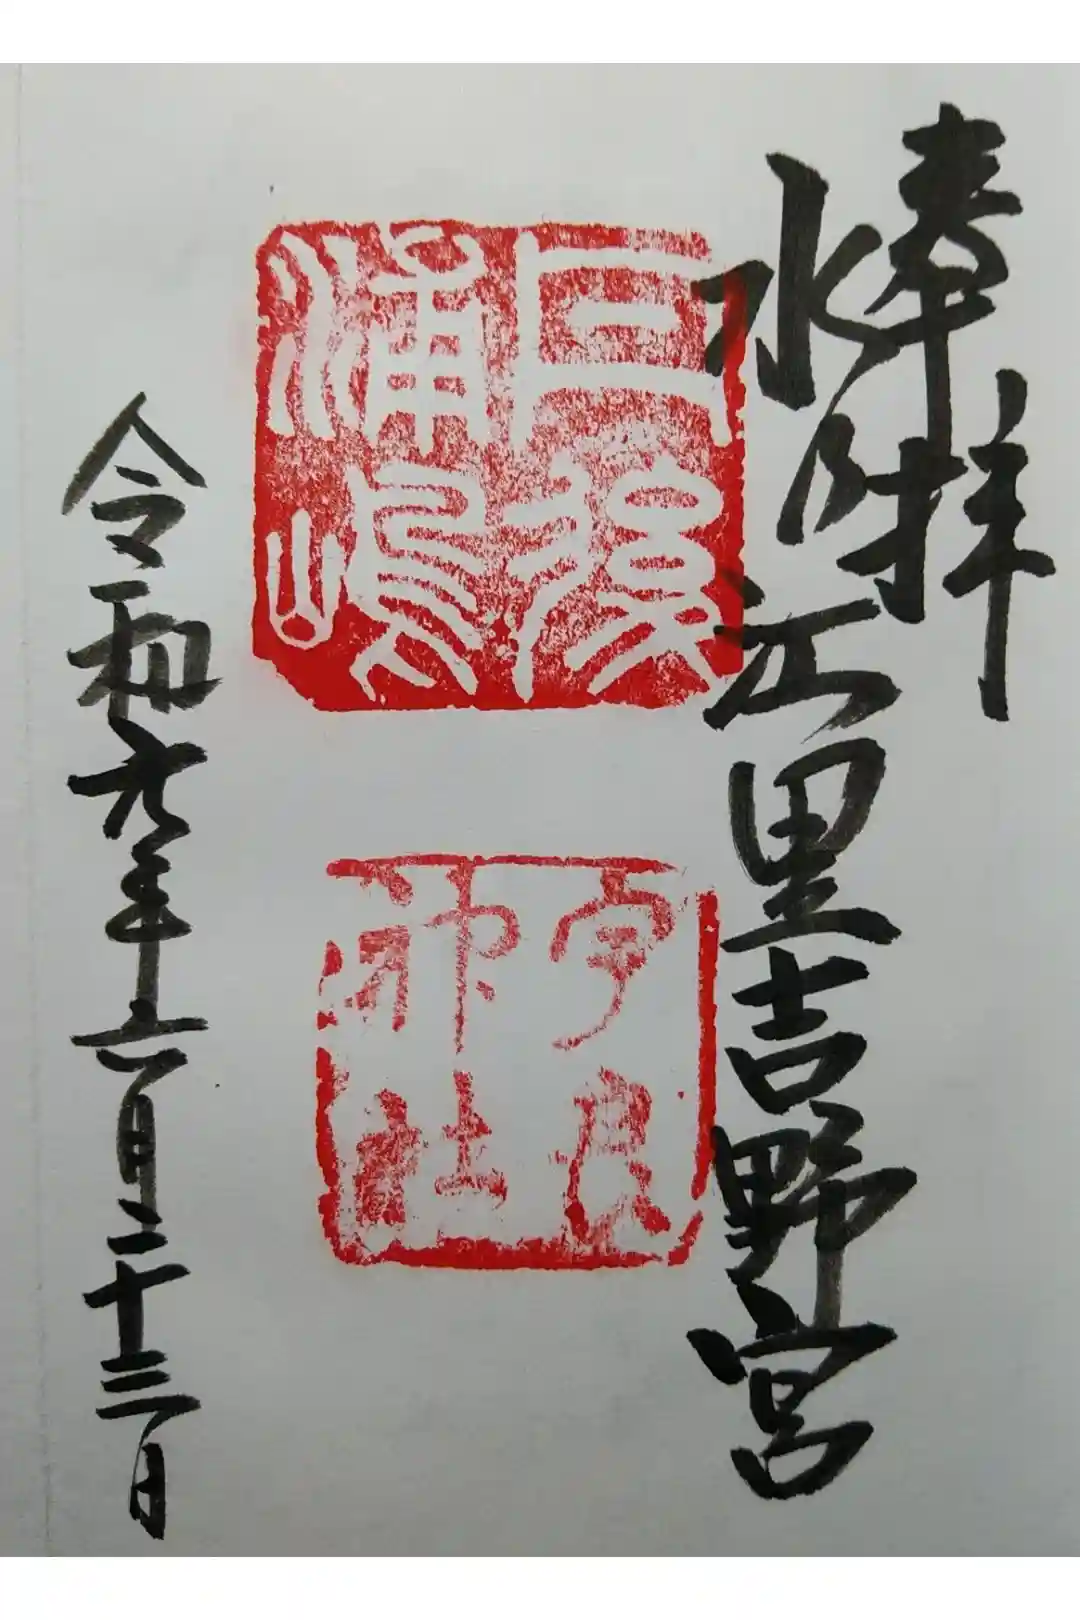 奉拝
水附江里吉野宮
浦嶋
宇良
神社
令和元年六月二十三日